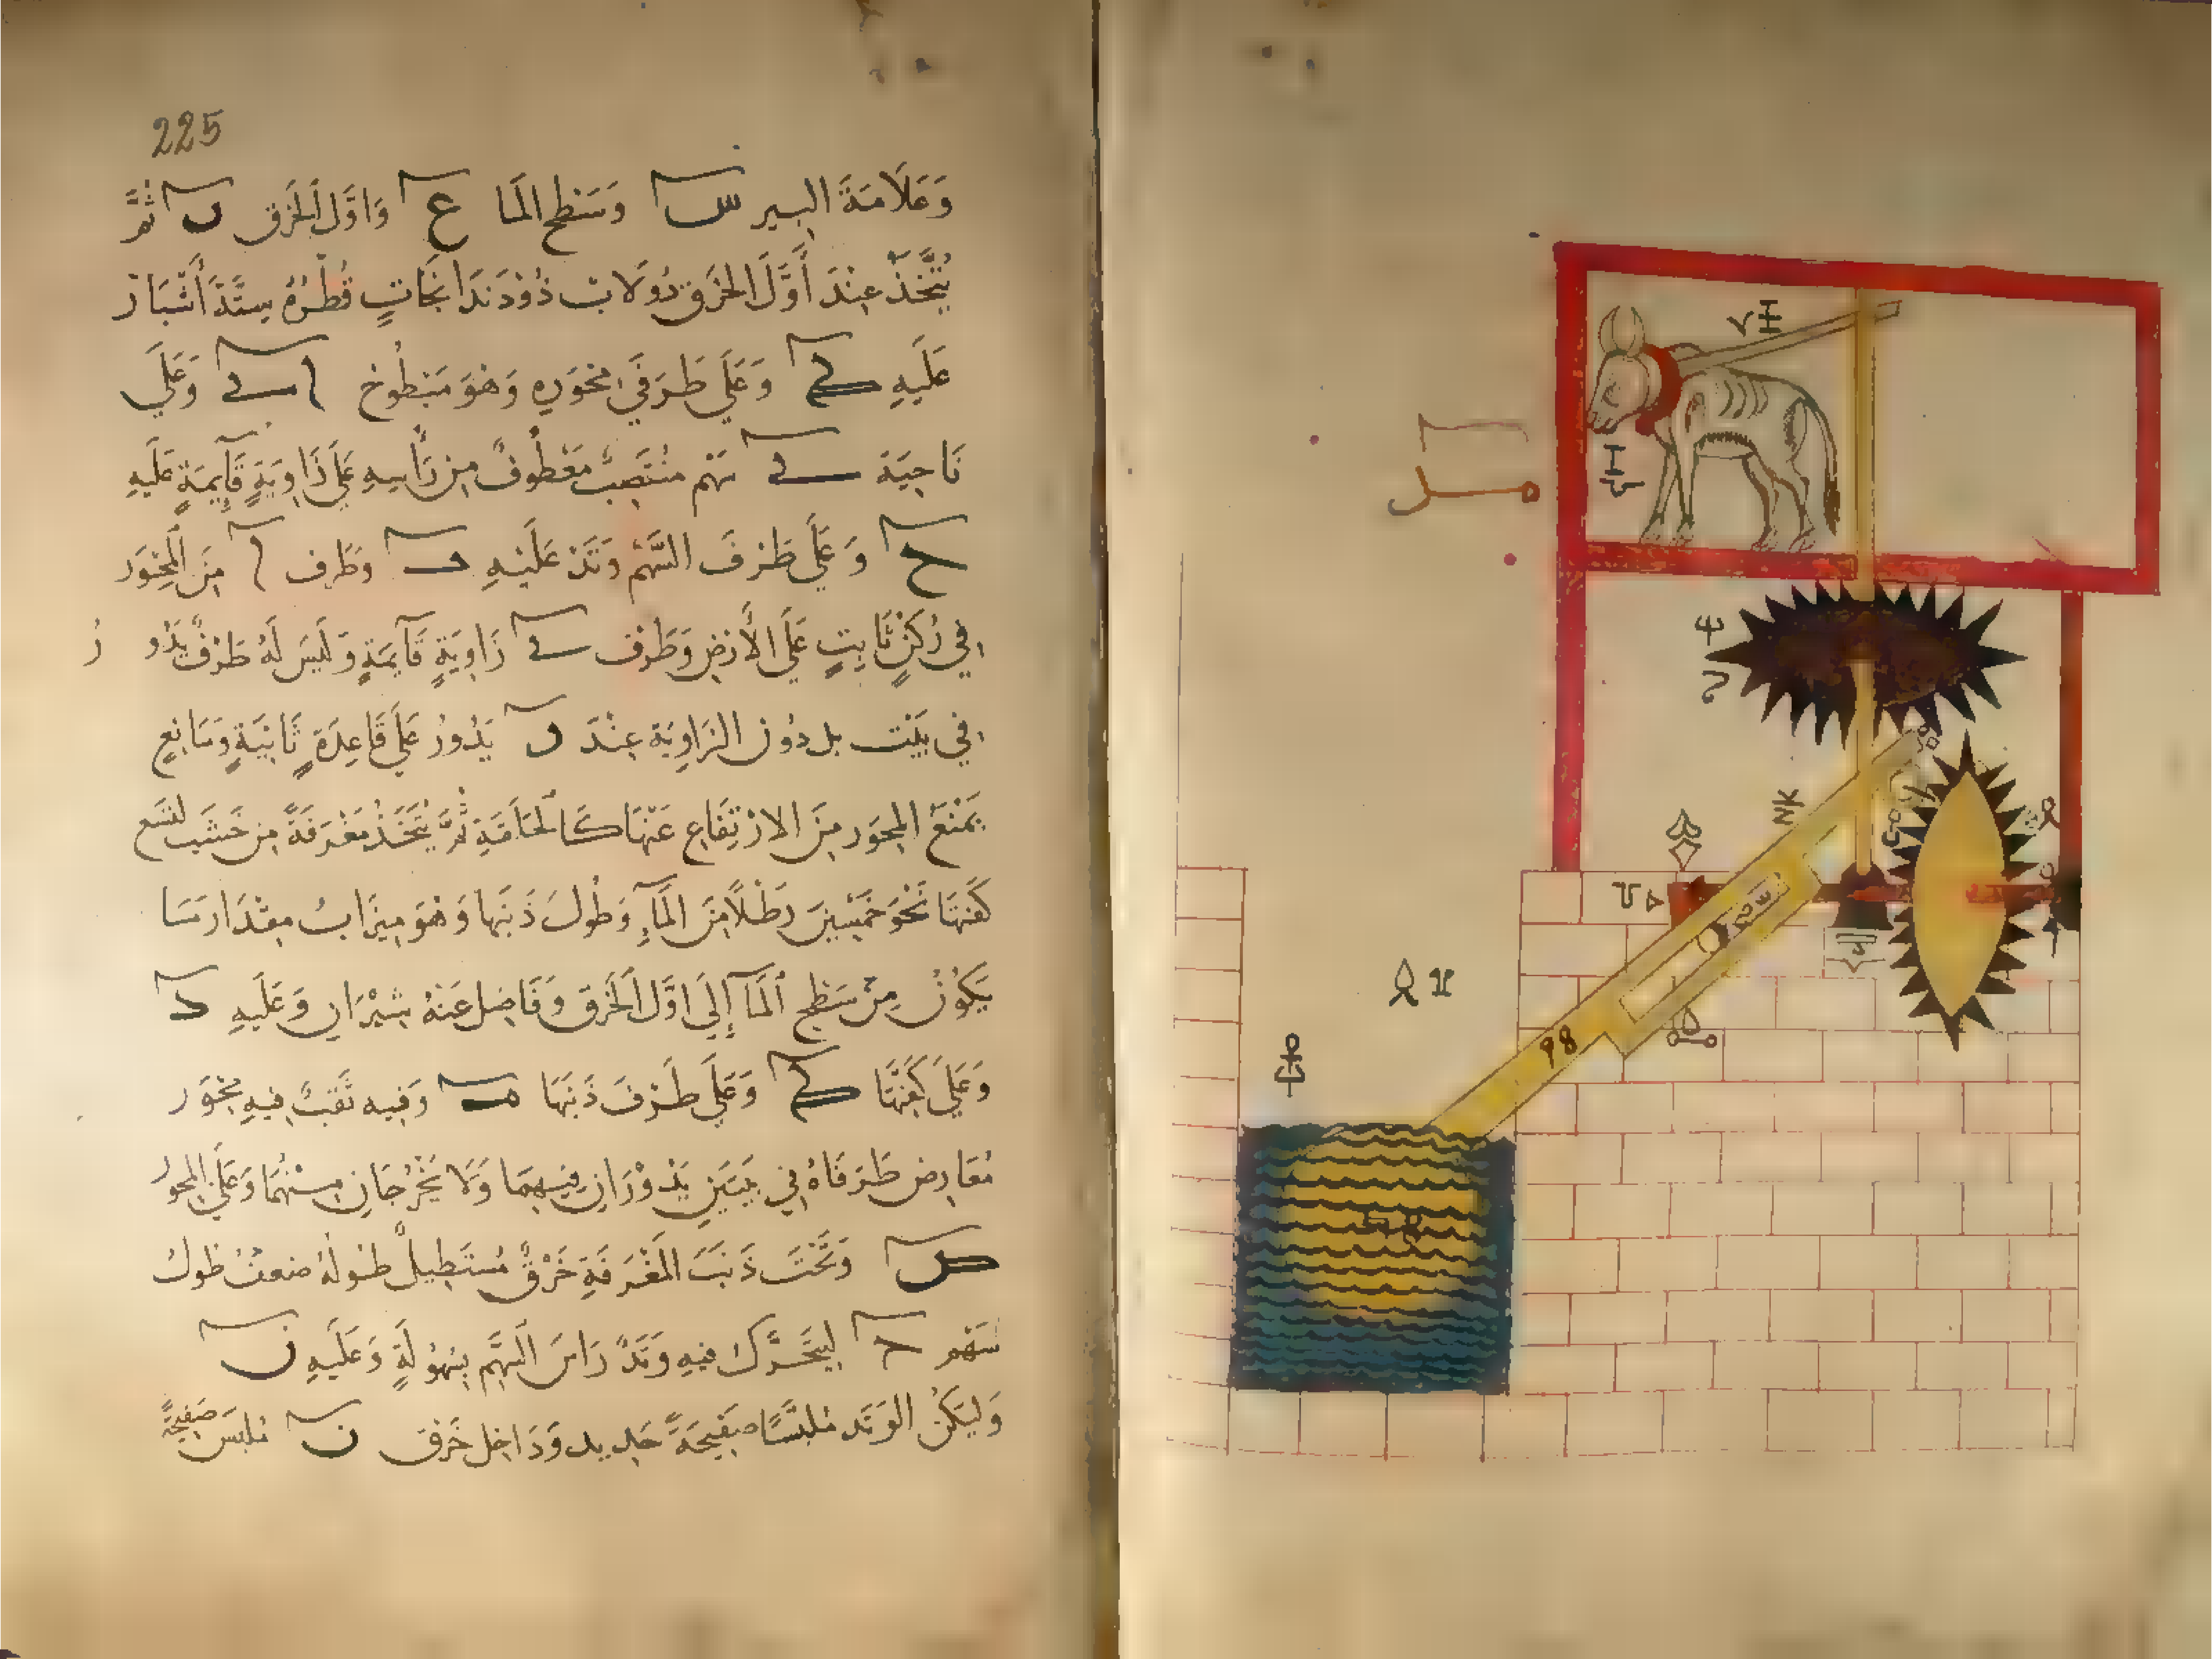 225
وَعَلَامَةَ البِير س وَسَطح المَا ع وَاوَّل الخَرق ن ثُمَّ
يُتَّخَذْ عِنْدَ أَوَّلَ الخَرَق دُولَاب ذُودَندَانجَاتٍ قُطْرُهُ سِتَّةَ أَشْبَار
عَلَيهِ ك وَعَلَي طَرَفَي مِحْوَرِهِ وَهْوَ مَبْطُوخ ا ـے وَعَلَي
نَاحِيَة ـے سَهْم مُنْتَصِبٌ مَعْطُوفٌ مِن رَأسِهِ عَلَي زَاوِيَةٍ قَآيِمَةٍ عَلَيهِ
ح وَعَلَي طَرْفَ السَّهْم وَتَدْ عَلَيْهِ وَطَرف ا مِنَ المِحْوَر
فِي رُكنٍ ثَابِتٍ عَلَي الأَرْضِ وَطَرْف ـے زَاوِيَةٍ قَآيمَةٍ وَلَيسَ لَهُ طَرْفٌ يَدُو ر
فِي بَيْت بل دُون الزَاوِيَة عِنْدَ يَدُورُ عَلَي قَاعِدَةٍ ثَانِيَةٍ وَمَانِعٍ
يَمْنَعُ المِحوَر مِنَ الارْتِفَاعِ عَنْهَا كَالحَلَقَةِ ثُمَّ يُتَخَذُ مَغْرَفَةً مِن خَشَب لتسَع
كَفّتهَا نَحْوَ خَمْسِينَ رَطْلًا مِنَ المَآءِ وَطُولَ ذَنَبِهَا وَهْوَ مِيزَابٌ مِقْدَار مَا
يَكُونُ مِنْ سَطْحِ المَآ إِلَي اوَّل الخَرَق وَفَاضِل عَنْهُ شِبْرَانِ وَعَلَيهِ
وَعَلَي كَفّتهَا ك وَعَلَي طَرْفَ ذَنَبِهَا وَفِيه ثَقبٌ فِيهِ مِحْوَر
مُعَارِض طَرَفَاهُ فِي بَيْتَينِ يَدْوْرَانِ فِيهِمَا وَلَا يَخْرُجَانِ مِنْهُمَا وَعَلَي المحور
ص وَتَحْتَ ذَنَبَ المَغْرَفَةِ خَرْقٌ مُسْتَطِيلٌ طُولهُ ضعفُ طُول
سَهْم ح لِيَتَحَرَّكَ فِيهِ وَتَدُ رَاسَ السَّهْمِ بِسُهُولَةٍ وَعَلَيهِ ف
وَليَكُن الوَتَد مُلَبَّسًا صَفِيحَةً حَدِيد وَدَاخِل خَرق ف مُلبَسَ صَفِيحَة
98